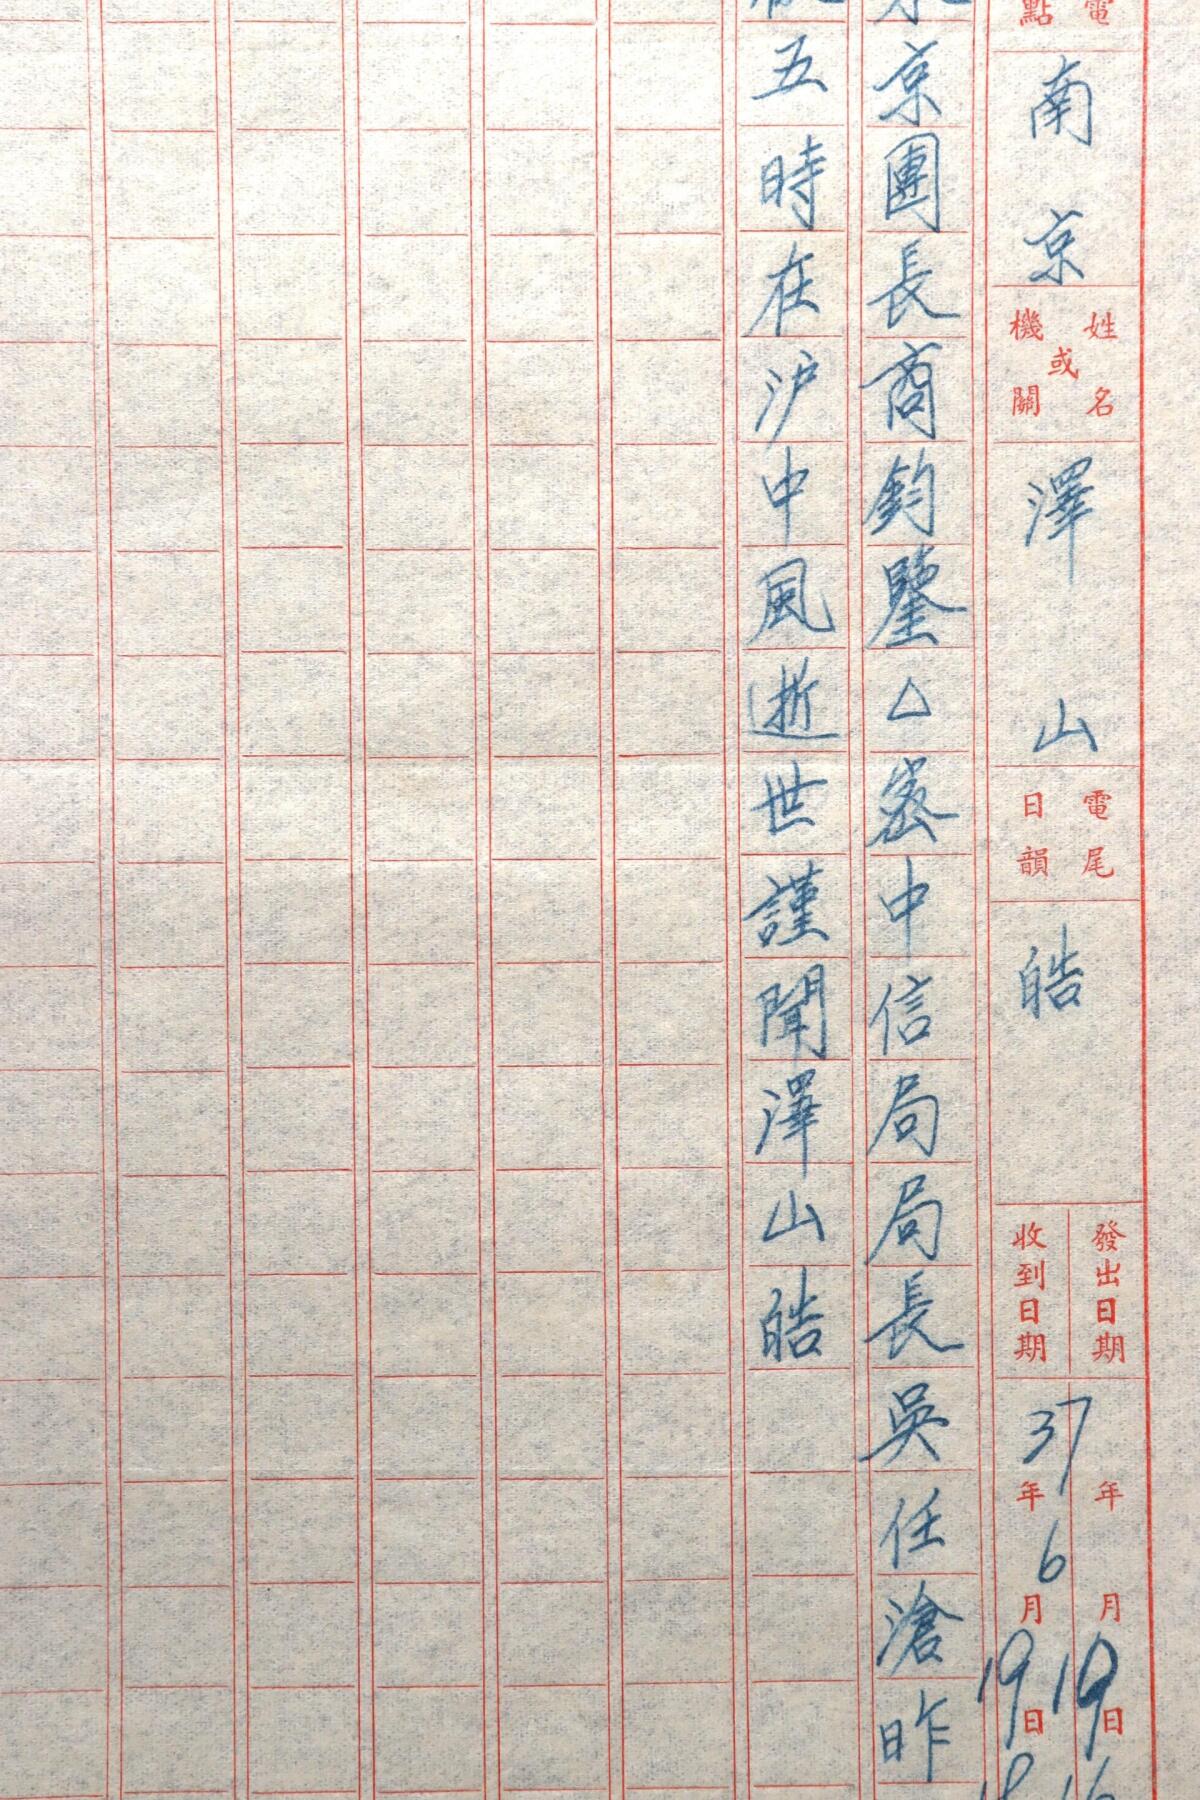 電點
南京
姓名或機關
澤山
電尾日韻
皓
發出日期
收到日期
37年6月19日
年月19日
京團長商鈞鑒△密中信局局長吳任滄昨
五時在沪中風逝世謹聞澤山皓